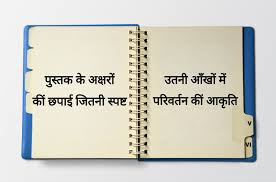 पुस्तक के अक्षरों
कीं छपाई जितनी स्पष्ट
उतनी आँखों में
परिवर्तन कीं आकृति
V
VI